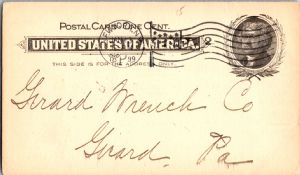 15
POSTAL CARD - ONE CENT.
UNITED STATES OF AMERICA.
THIS SIDE IS FOR THE ADDRESS ONLY.
99
Girard Wrench Co
Girard. Pa